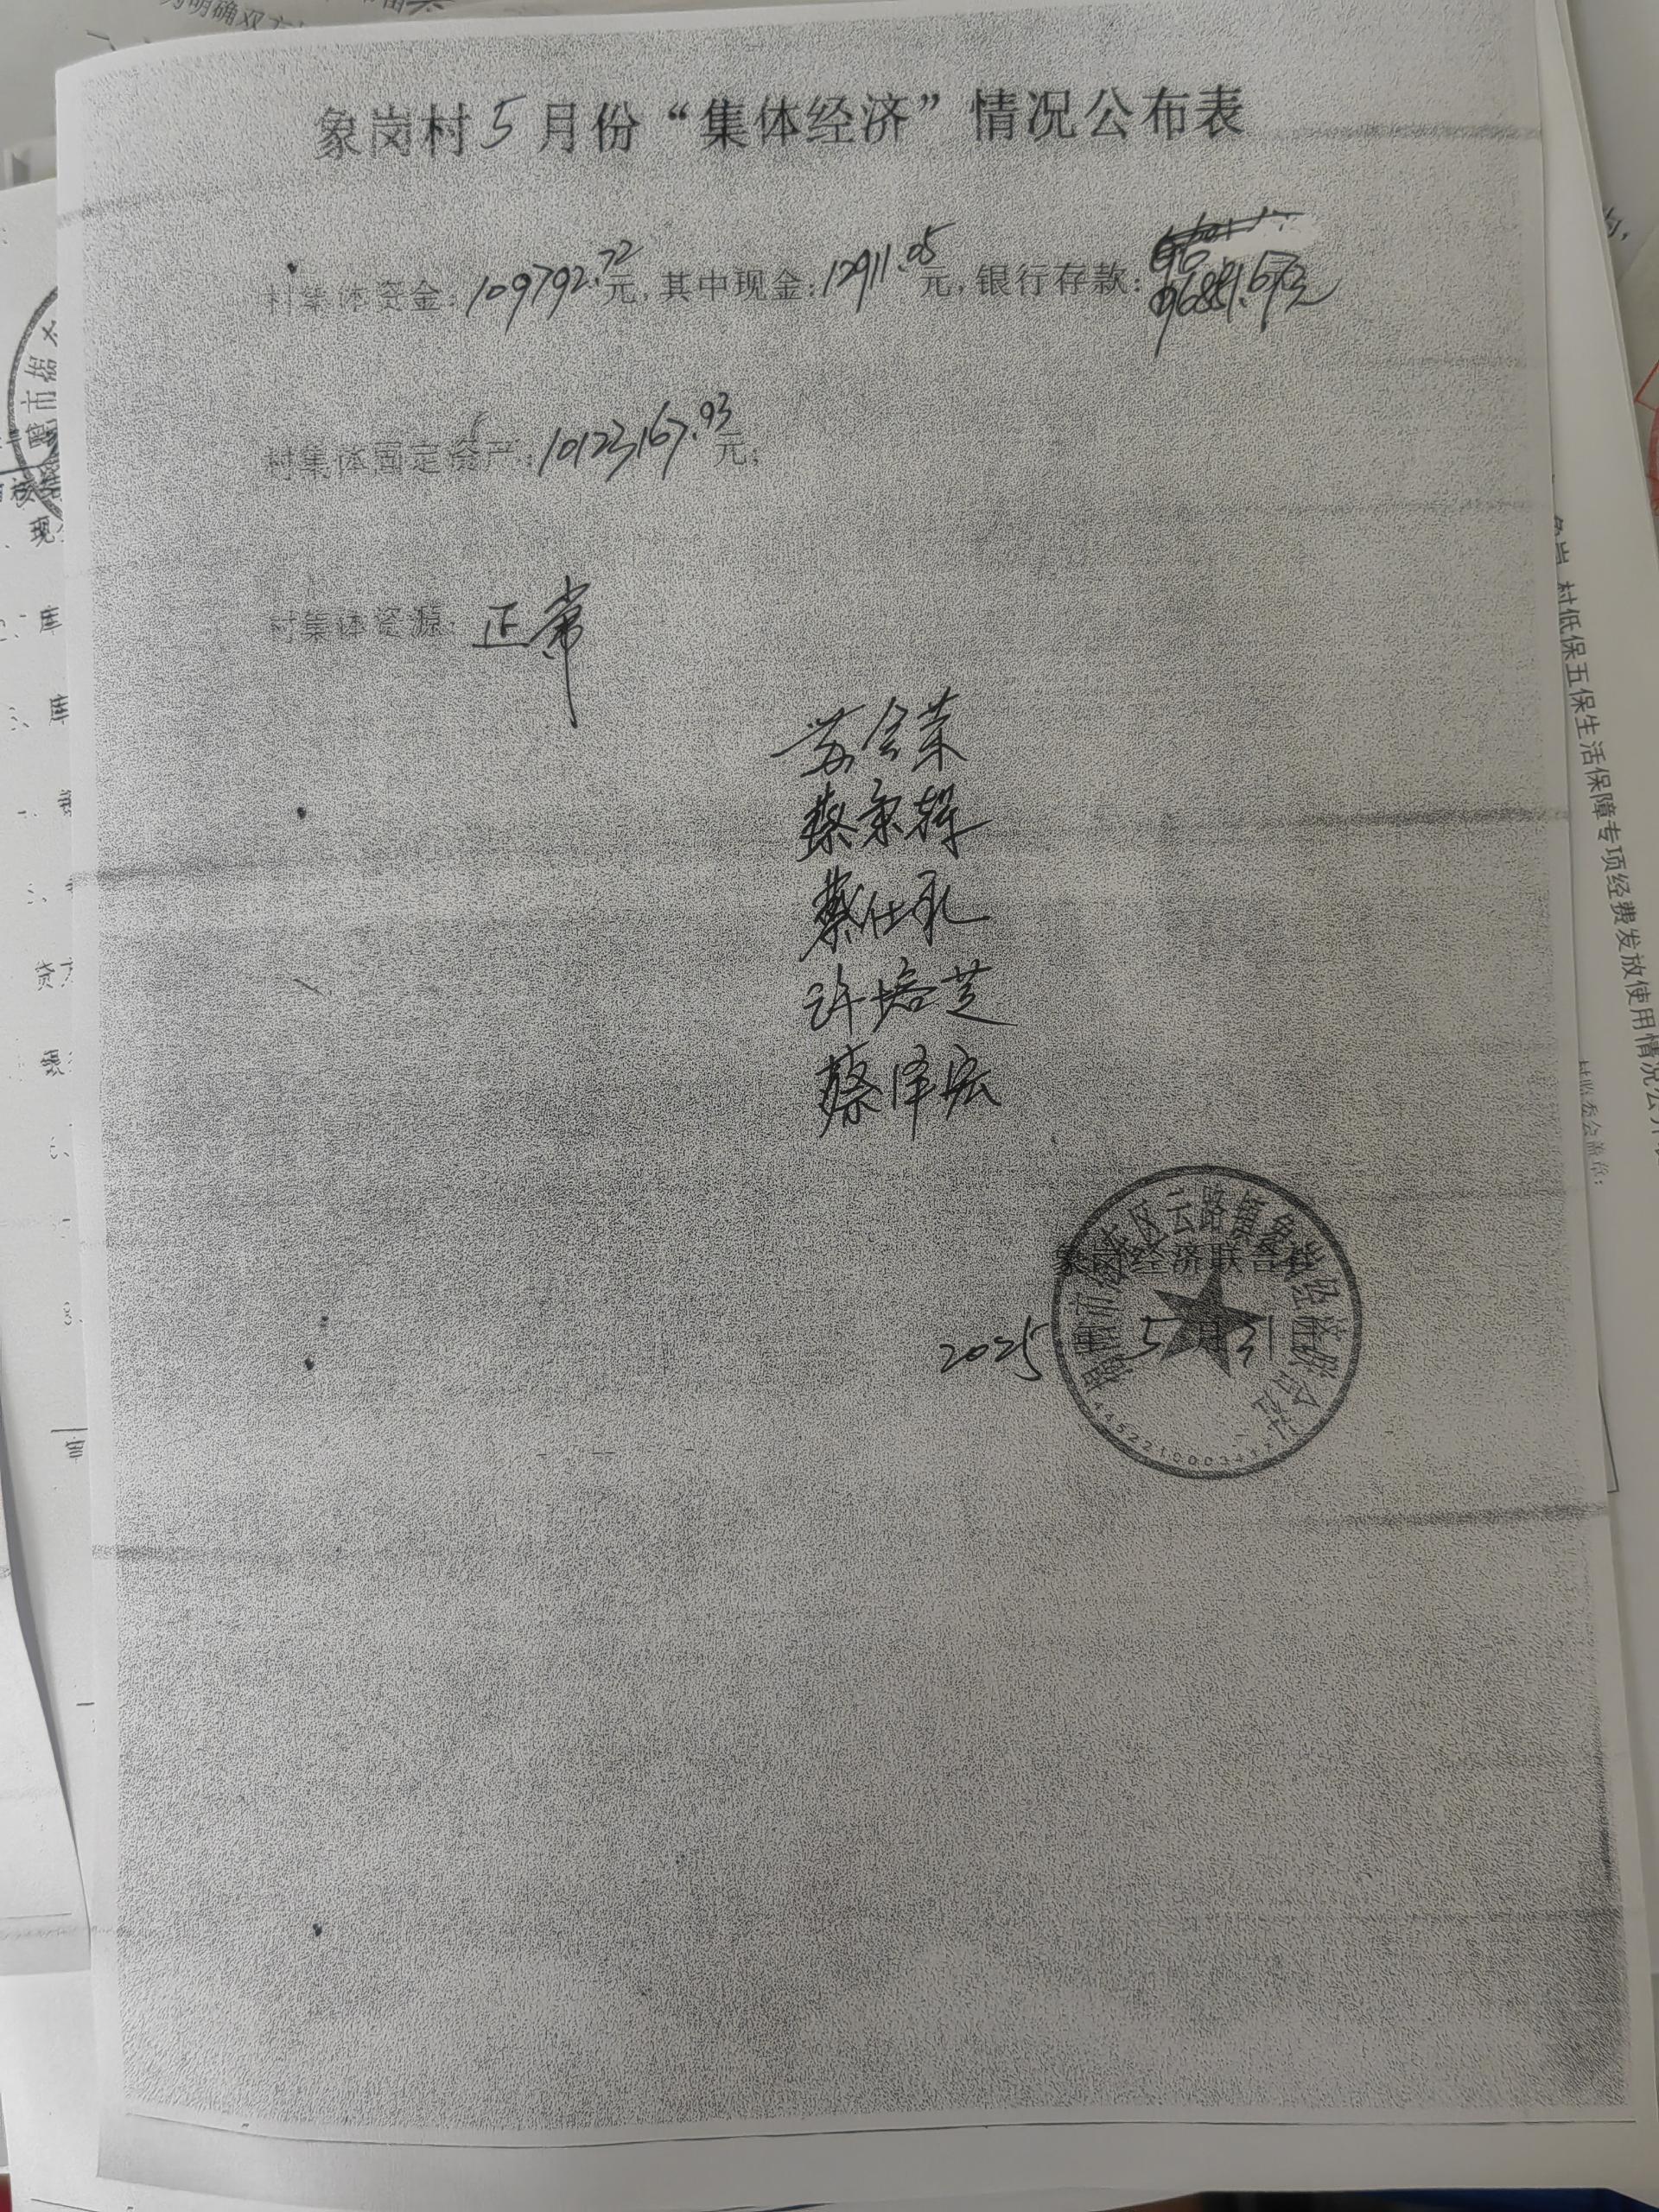 象岗村5月份“集体经济”情况公布表
村集体资金:109792.72元,其中现金:12911.05元,银行存款:96881.67元
村集体固定资产:10123167.93元;
村集体资源:正常
苏会荣
蔡秉辉
蔡仕乳
许培芝
蔡泽宏
象岗经济联合社
2025 5月31
区云路镇象岗经济联合社
村低保五保生活保障专项经费发放使用情况公